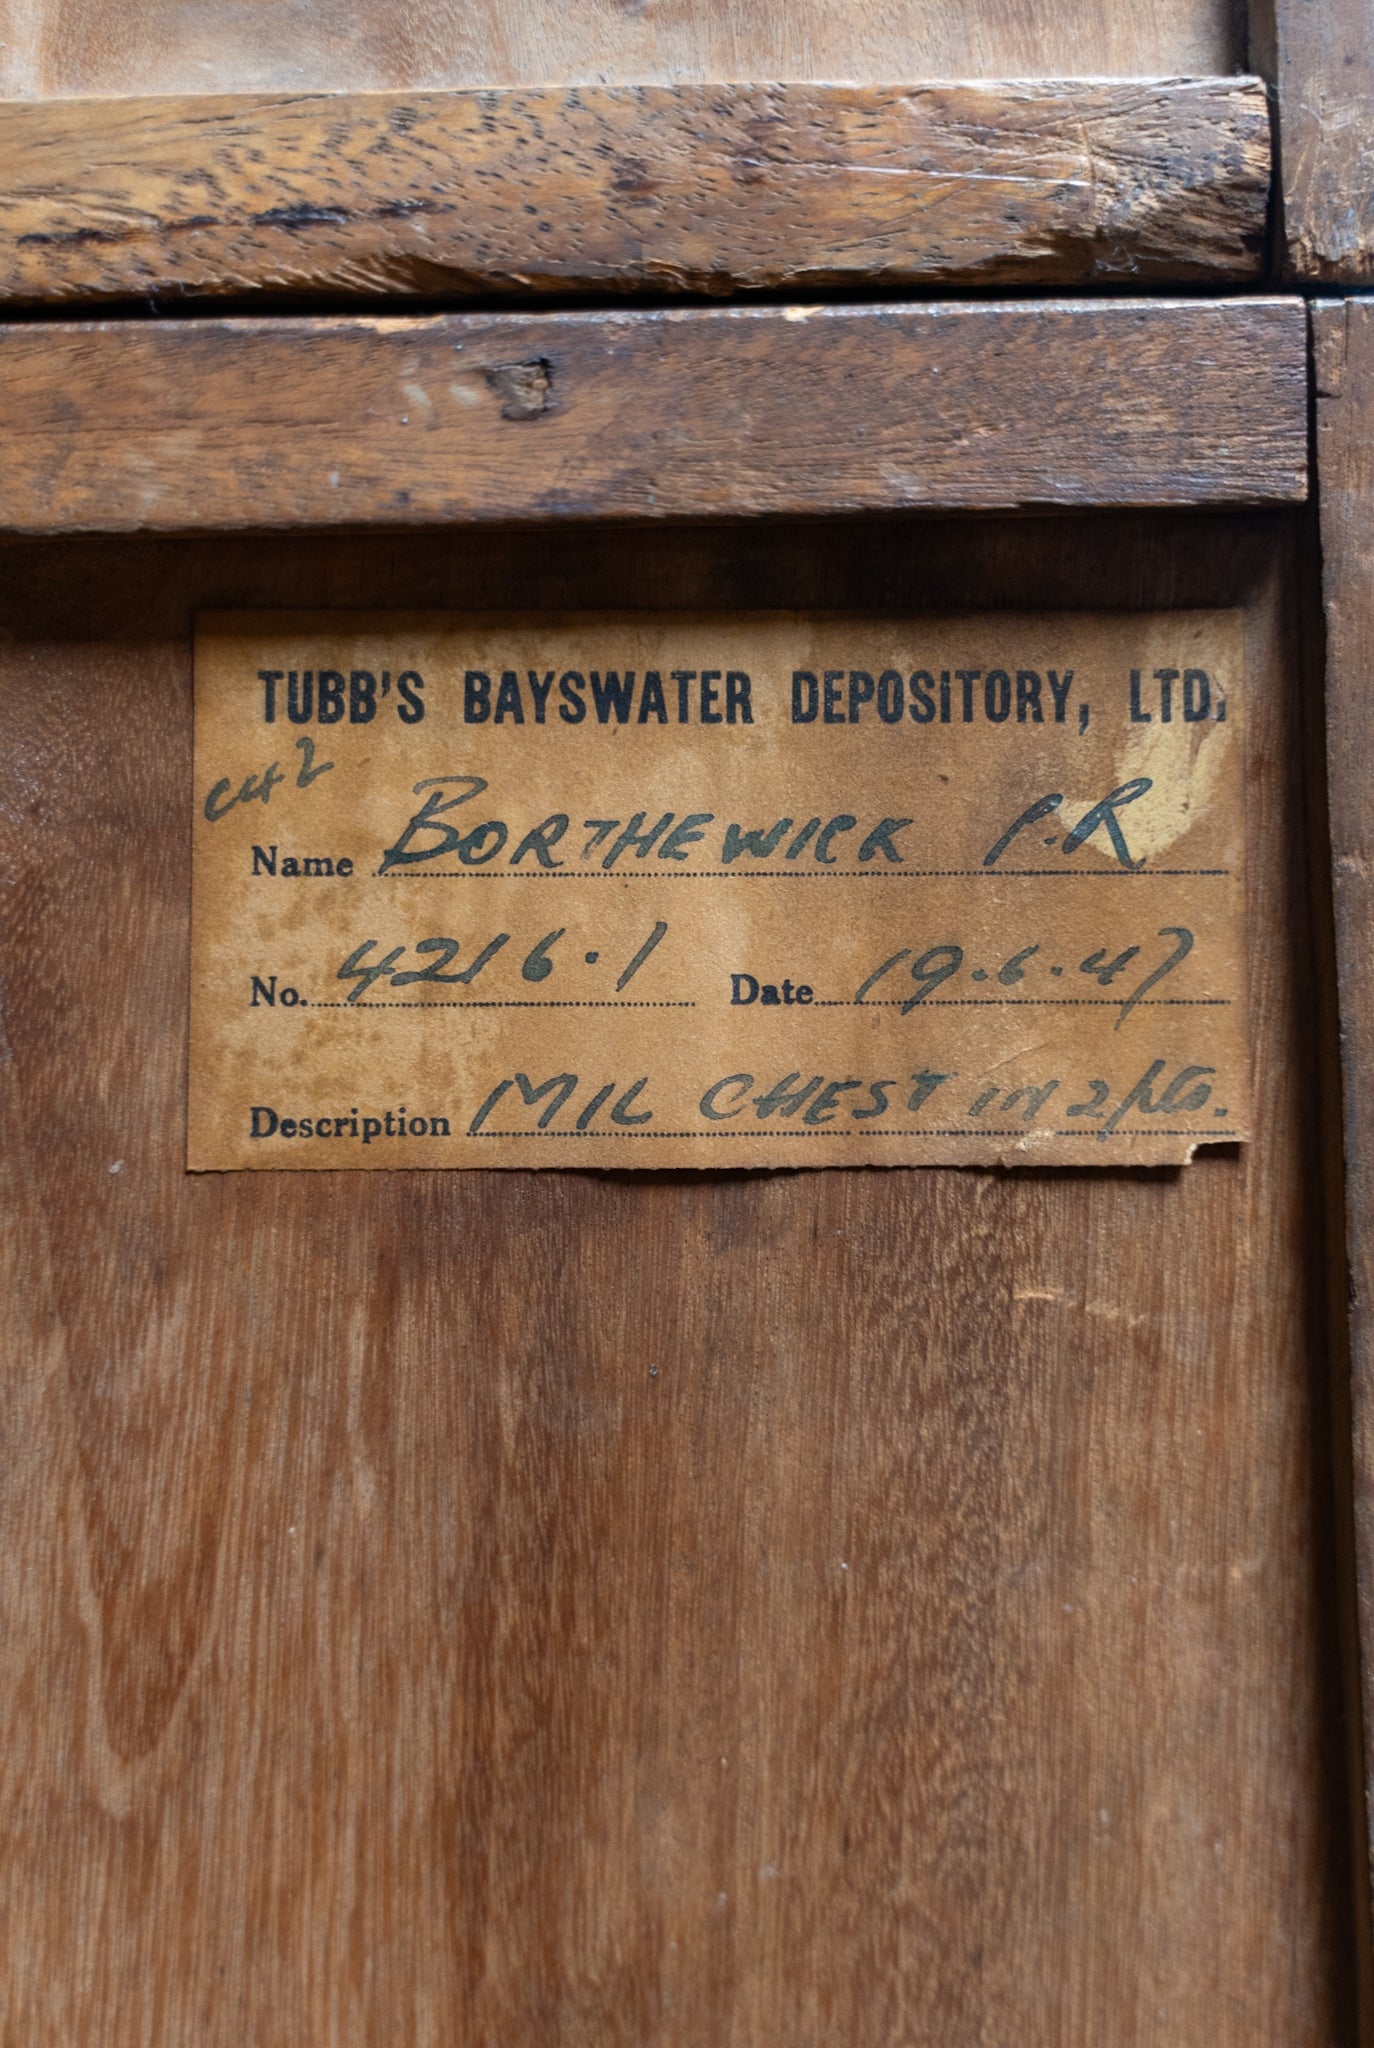 TUBB'S BAYSWATER DEPOSITORY, LTD.
Name BORTHEWICK P.R
No. 4216.1 Date 19.6.47
Description MIL CHEST IN 2 pts.